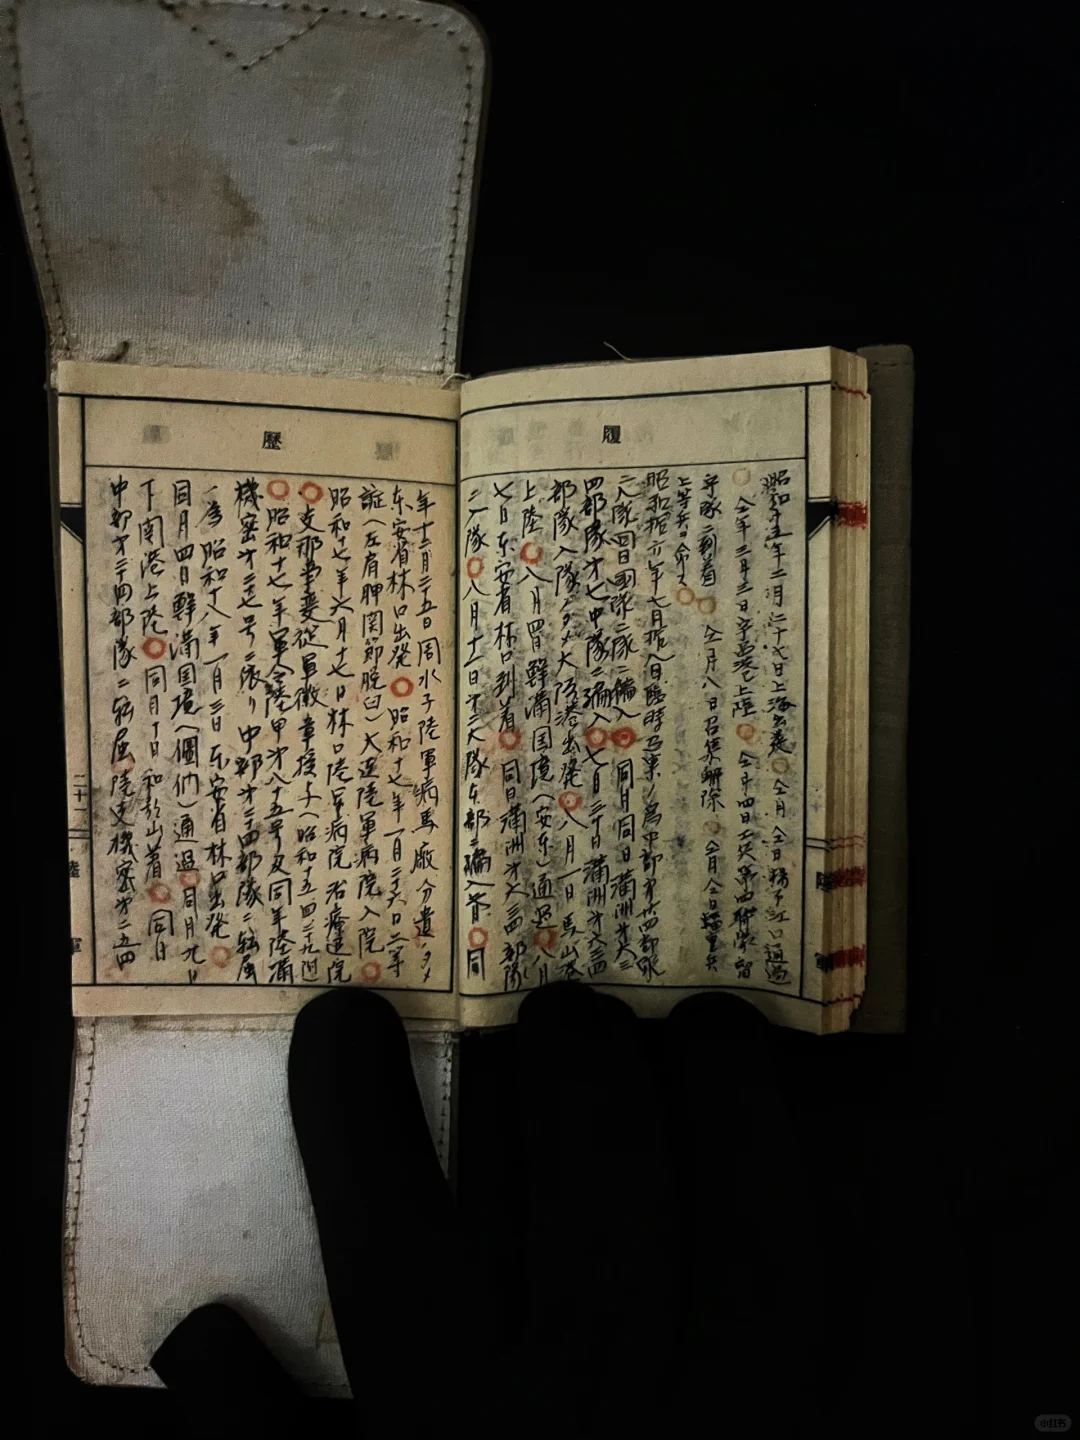 履
昭和十五年二月二十七日上海出発○仝月仝日揚子江口通過
○仝年三月三日宇品港上陸○仝月四日工兵第四聯隊留
守隊ニ到着○仝月八日召集解除○仝月仝日輜重兵
上等兵ヲ命ス○
昭和拾六年七月拾八日臨時召集ノ為中部第廿四部隊
ニ入隊○同月同日満洲第六三
四部隊第七中隊ニ編入○七月三十日満洲第六三四
部隊入隊ノタメ大阪港出発○八月一日馬山港
上陸○八月四日鮮満国境(安東)通過○八月
七日东安省林口到着○同日満洲第六三四部隊
ニ入隊○八月十一日第三大隊本部ニ編入替○同
歴
年十二月二十五日周水子陸軍病馬廠分遣ノタメ
东安省林口出発○昭和十七年一月二十六日二等
症(左肩胛関節脱臼)大連陸軍病院入院○
昭和十七年六月十七日林口陸軍病院治療退院
○支那事変従軍徽章授与(昭和十五四二九附)
○昭和十七年軍令陸甲第八十五号及同年陸満
機密第三七号ニ依リ中部第二十四部隊ニ転属
ノ為昭和十八年一月三日东安省林口出発○
同月四日鮮満国境(図们)通過○同月九日
下関港上陸○同月十日和歌山着○同日
中部第二十四部隊ニ転属陸支機密第二五四
二十二
陸
軍
小红书